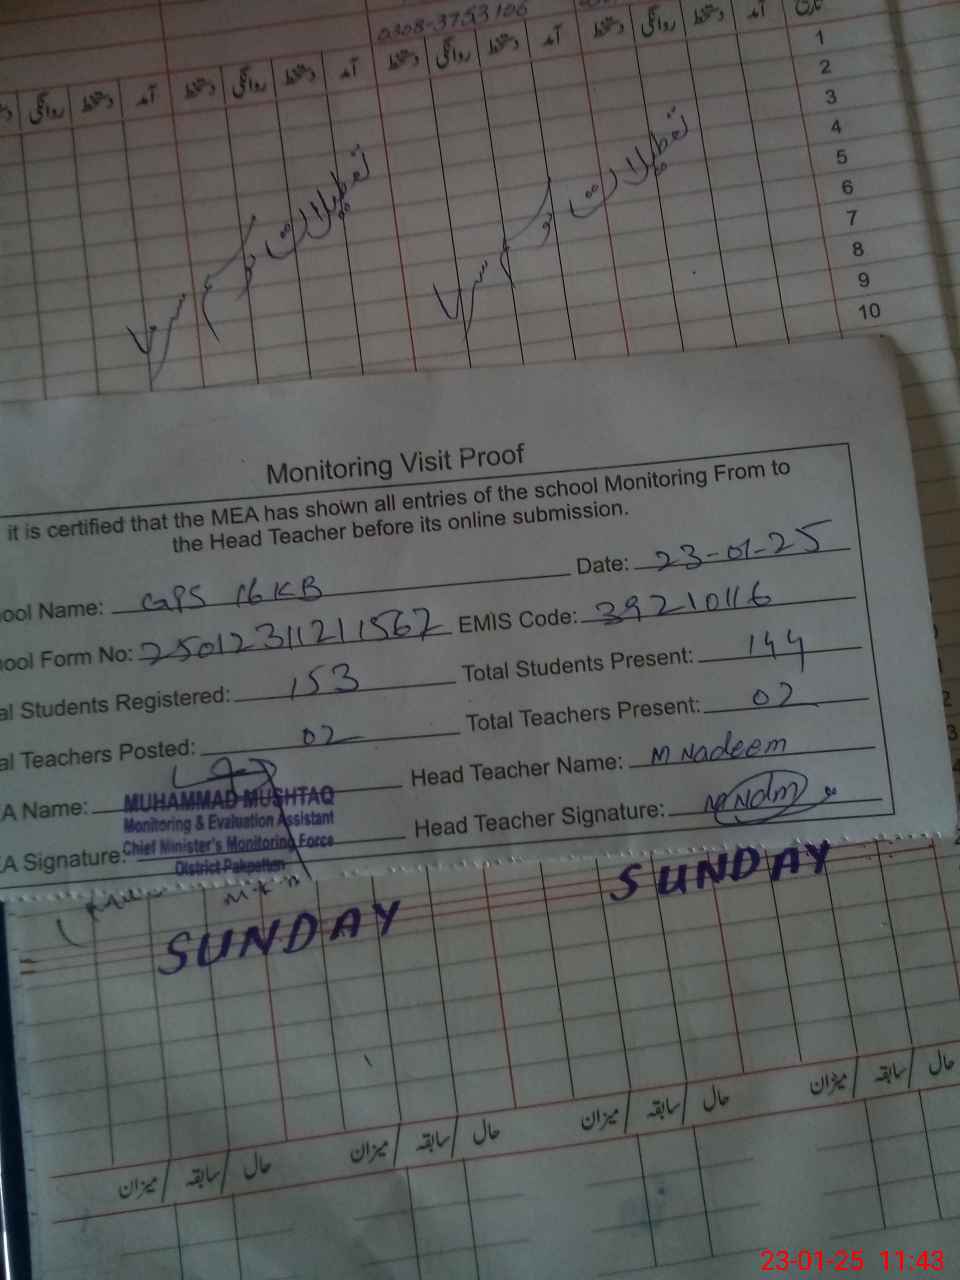 0308-3753106
دستخط روانگی دستخط آمد دستخط روانگی دستخط آمد دستخط روانگی دستخط آمد
1
2
3
4
5
6
7
8
9
10
تعطیلات موسم سرما
تعطیلات موسم سرما
Monitoring Visit Proof
it is certified that the MEA has shown all entries of the school Monitoring From to
the Head Teacher before its online submission.
ool Name: GPS 16 KB Date: 23-01-25
ool Form No: 25012311211567 EMIS Code: 39210116
al Students Registered: 153 Total Students Present: 144
al Teachers Posted: 02 Total Teachers Present: 02
A Name: Head Teacher Name: M Nadeem
MUHAMMAD MUSHTAQ
Monitoring & Evaluation Assistant
A Signature: Chief Minister's Monitoring Force Head Teacher Signature:
District Pakpattan
SUNDAY SUNDAY
حال / سابقہ / میزان
حال / سابقہ / میزان
حال / سابقہ / میزان
حال / سابقہ / میزان
23-01-25 11:43